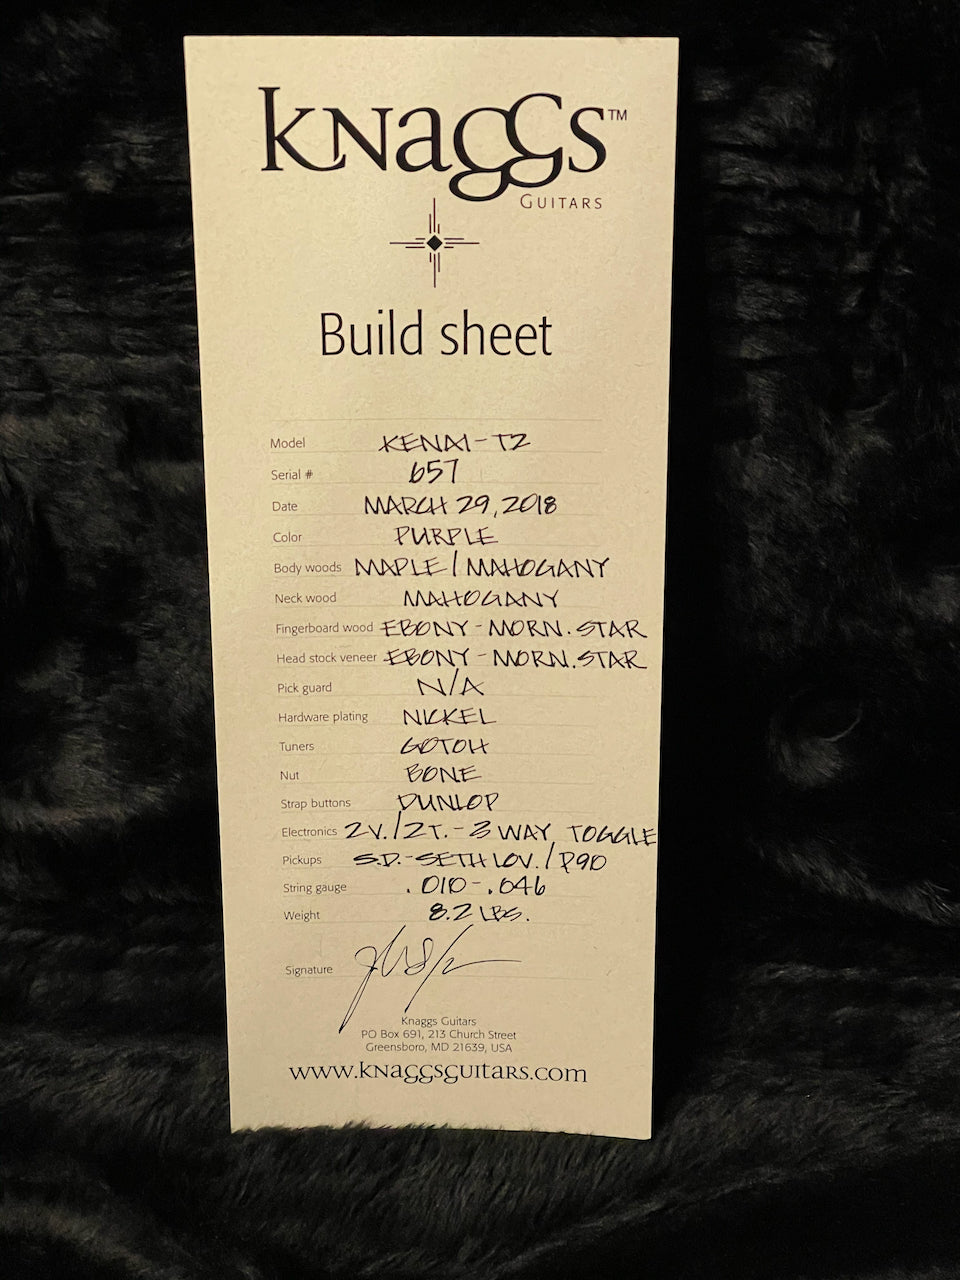 KNaGGS™
GUITARS
Build sheet
Model KENAI-T2
Serial # 657
Date MARCH 29, 2018
Color PURPLE
Body woods MAPLE / MAHOGANY
Neck wood MAHOGANY
Fingerboard wood EBONY - MORN. STAR
Head stock veneer EBONY - MORN. STAR
Pick guard N/A
Hardware plating NICKEL
Tuners GOTOH
Nut BONE
Strap buttons DUNLOP
Electronics 2V./2T. - 3 WAY TOGGLE
Pickups S.D. - SETH LOV. / P90
String gauge .010 - .046
Weight 8.2 LBS.
Signature
Knaggs Guitars
PO Box 691, 213 Church Street
Greensboro, MD 21639, USA
www.knaggsguitars.com